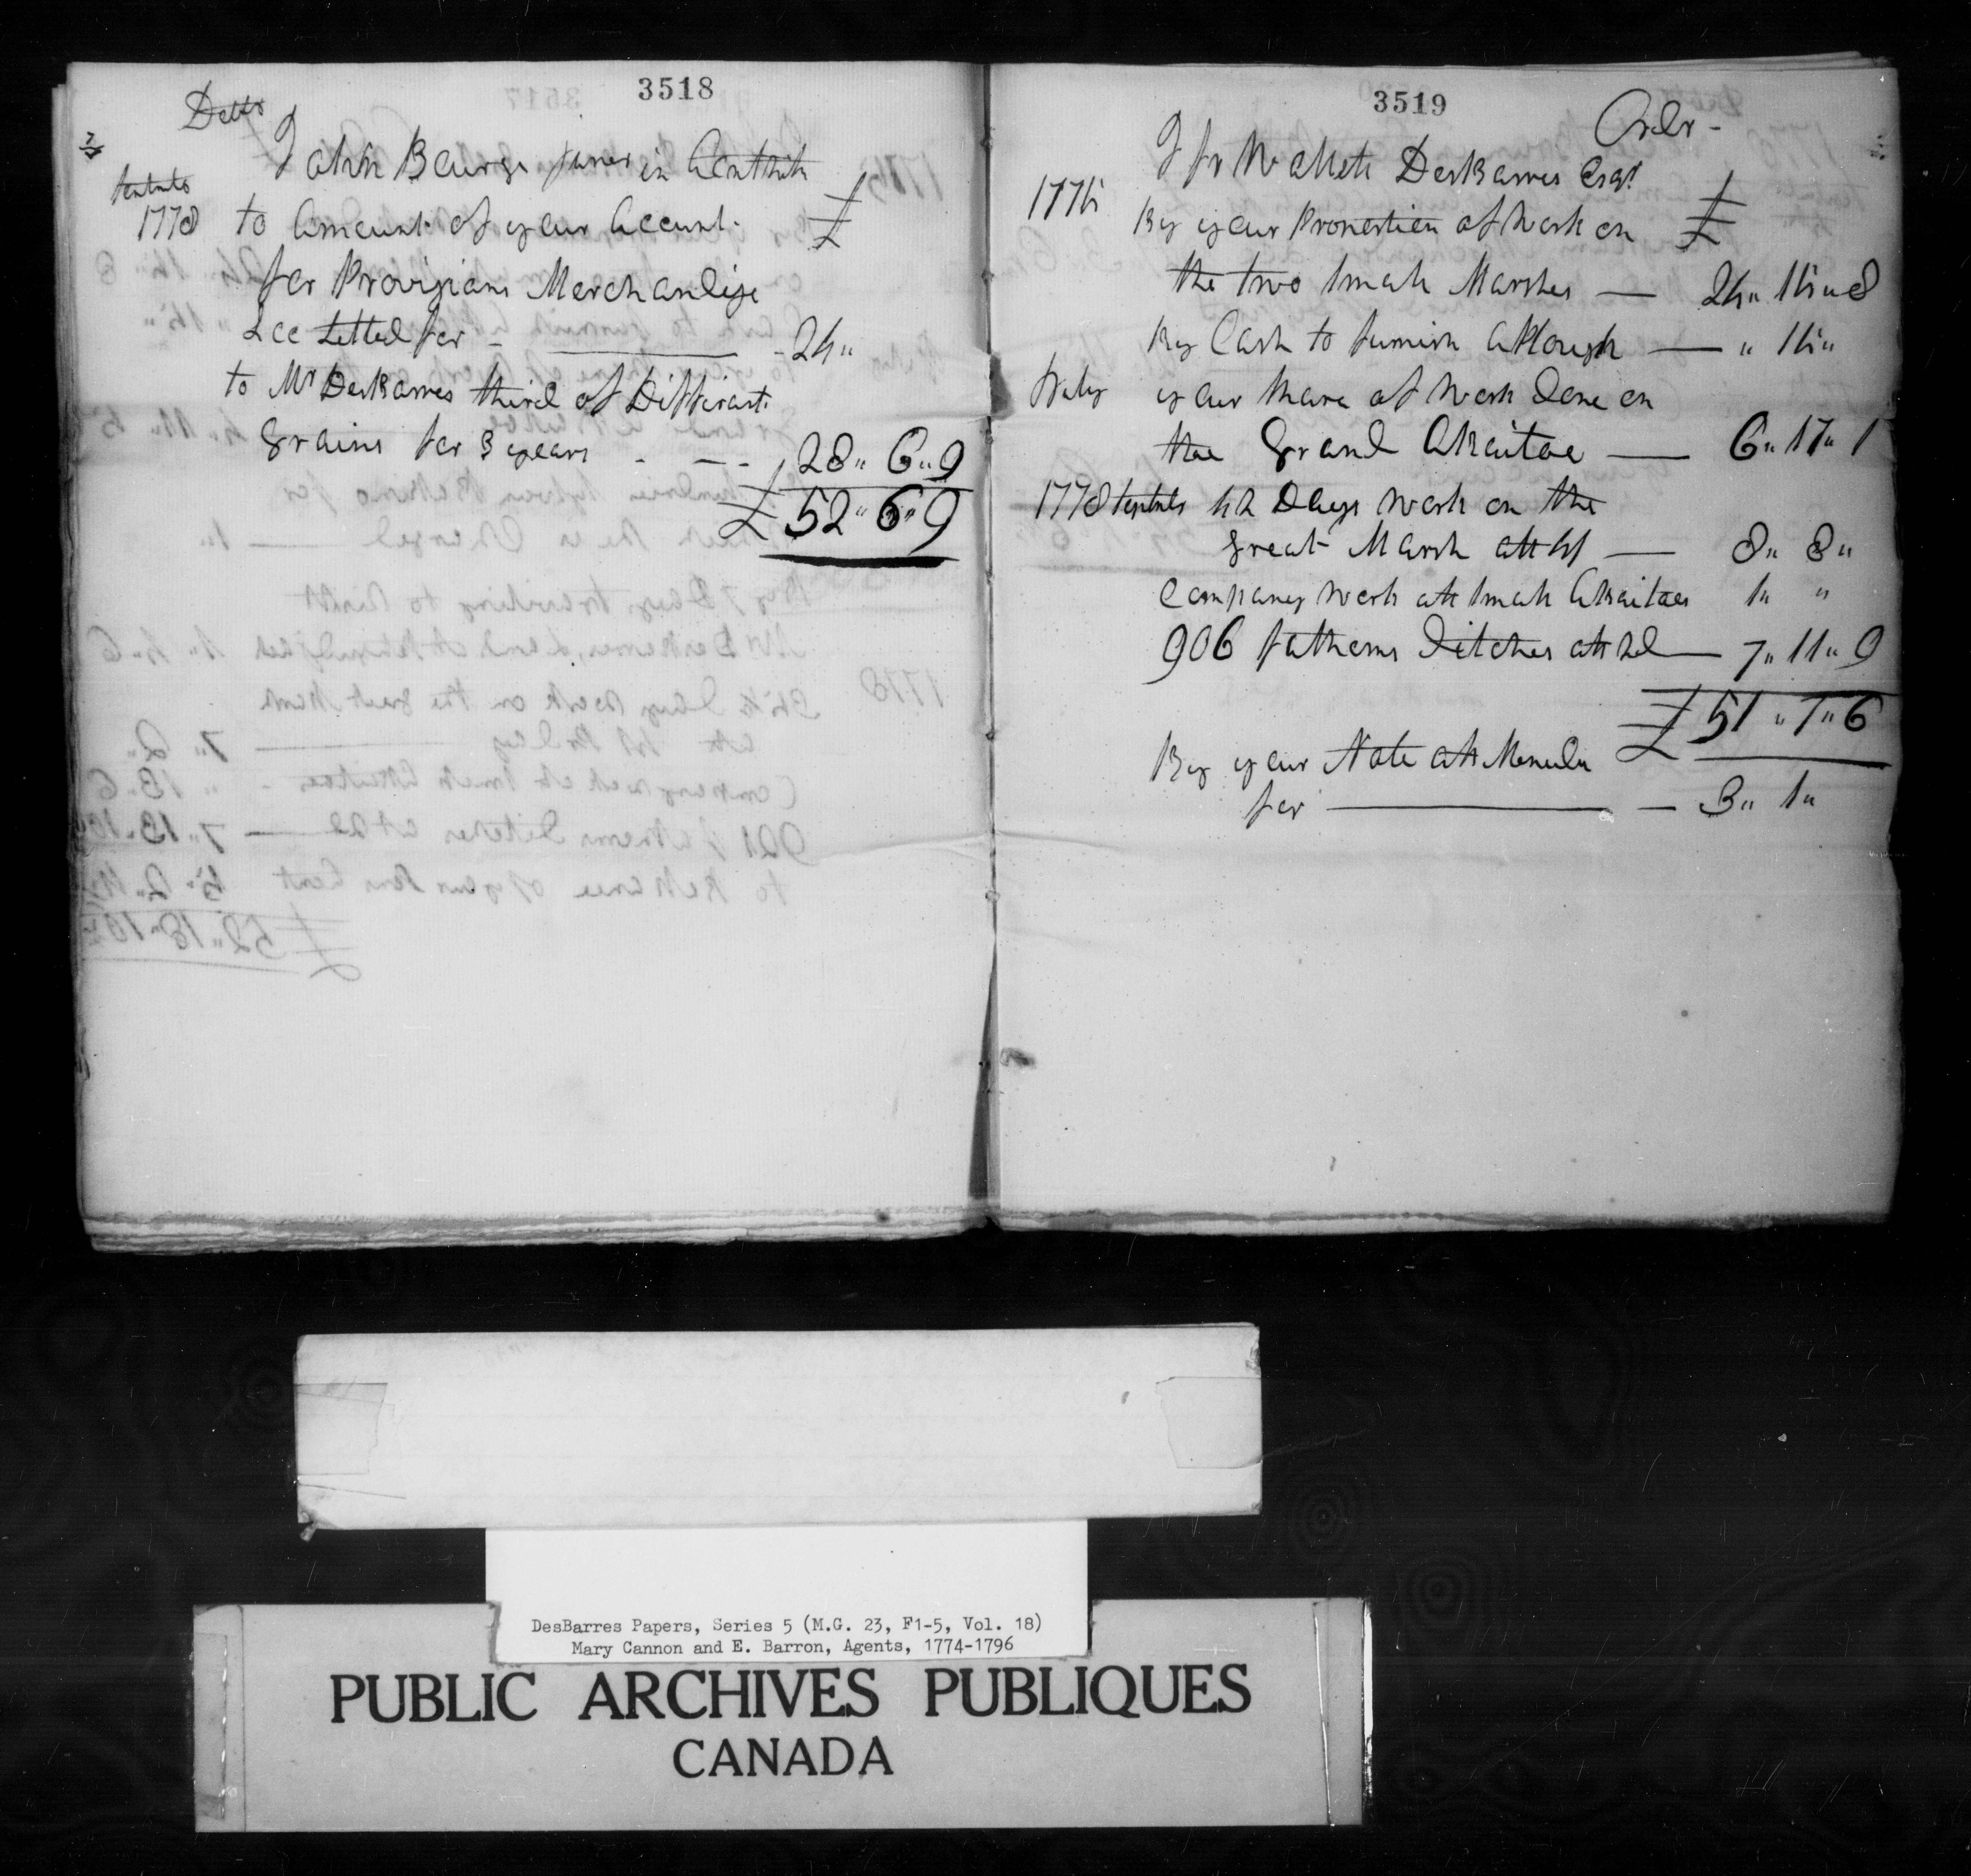 3518
Debtr
John Bourge juner in Contt with
1778 to Amount of your Account £
for Provisions Merchandise
&cc settled for - 24"
to Mr DesBarres third of Differant
Grains for 3 years - - - 28" 6" 9
£ 52" 6" 9
3519
Credr -
J fr Wallett DesBarres Esqr
1775 By your Proportion of Work on £
the two Small Marshes — 24" 15" 8
By Cash to furnish a Plough — " 15"
July your Share of Work Done on
the Grand Aboitoe — 6" 17" 1
1778 42 Days Work on the
Great Marsh att 4s — 8" 8"
Company work att Small Aboitoes 1" "
906 fathoms Ditches att 2d — 7" 11" 9
£ 51" 7" 6
By your Note att Menudie
for — — 3" 1"
DesBarres Papers, Series 5 (M.G. 23, F1-5, Vol. 18)
Mary Cannon and E. Barron, Agents, 1774-1796
PUBLIC ARCHIVES PUBLIQUES
CANADA